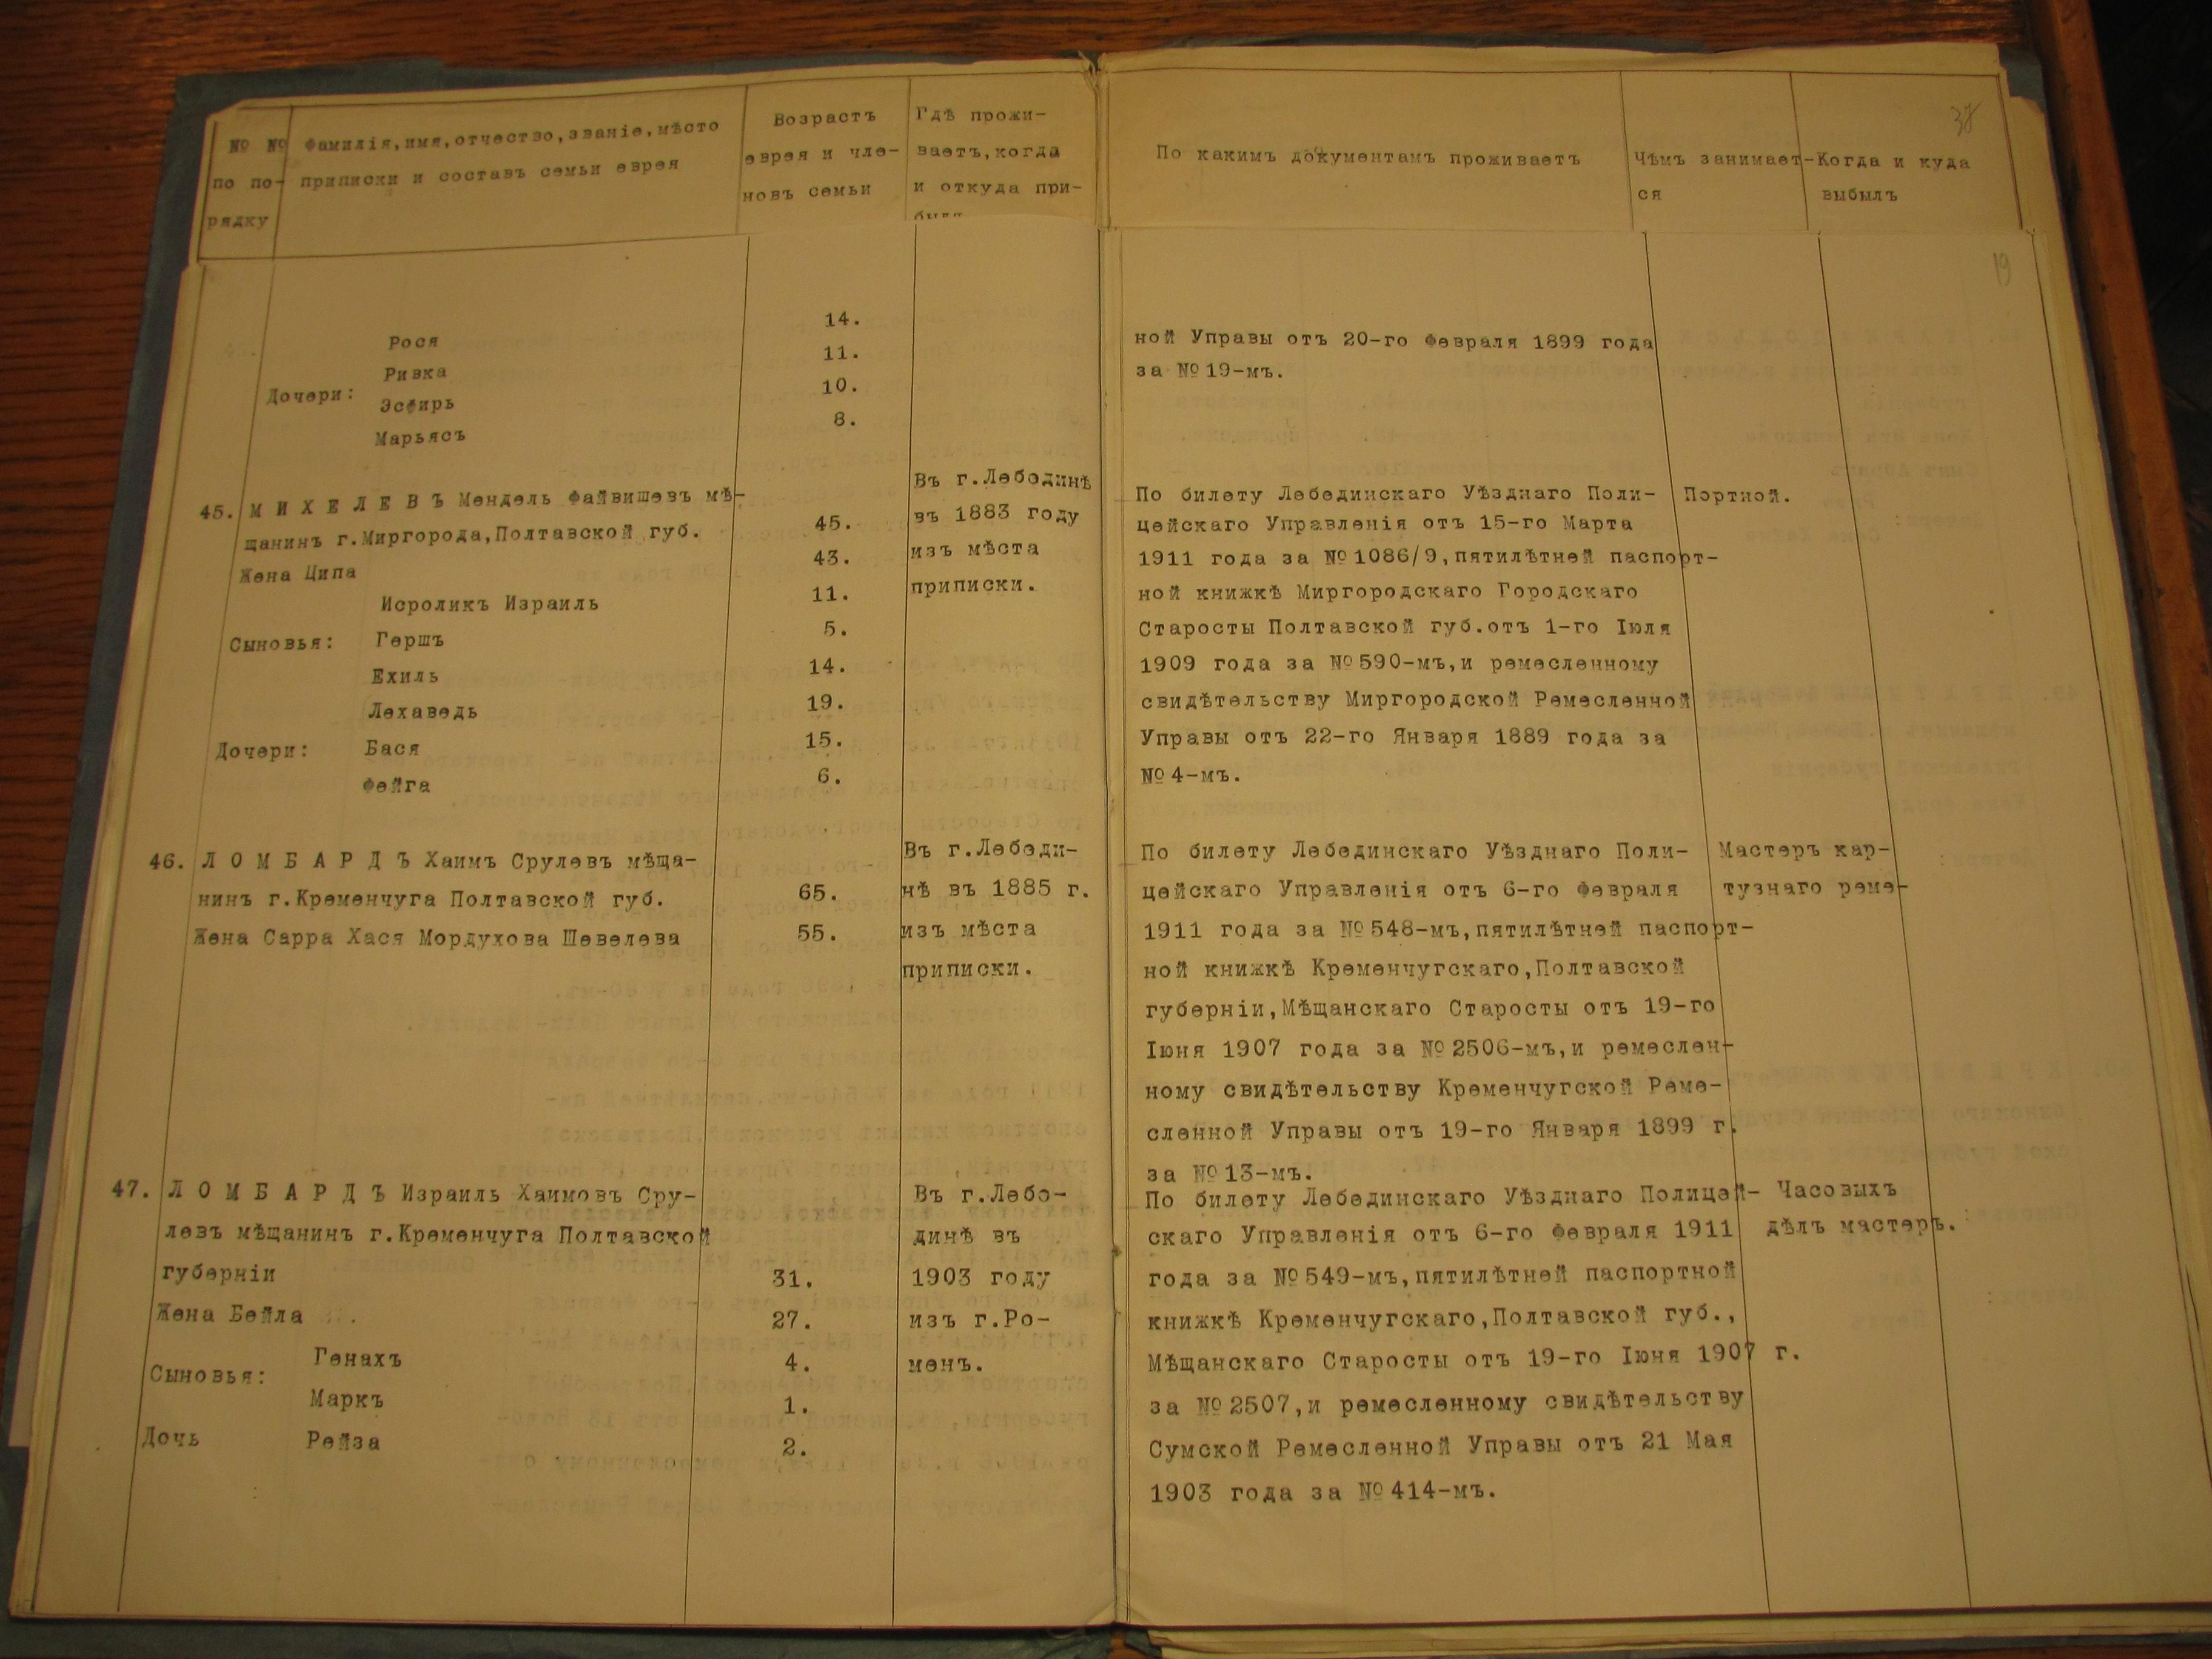 № № Фамилія,имя,отчество,званіе,мѣсто
по по- приписки и составъ семьи еврея
рядку
Возрастъ
еврея и чле-
новъ семьи
Гдѣ прожи-
ваетъ,когда
и откуда при-
По какимъ документамъ проживаетъ
Чѣмъ занимает-
ся
Когда и куда
выбылъ
38
19
Дочери:
Рося 14.
Ривка 11.
Эсфирь 10.
Марьясъ 8.
ной Управы отъ 20-го Февраля 1899 года
за №19-мъ.
45. М И Х Е Л Е В Ъ Мендель Файвишевъ мѣ-
щанинъ г.Миргорода,Полтавской губ. 45.
Жена Ципа 43.
Сыновья:
Исроликъ Израиль 11.
Гершъ 5.
Ехиль 14.
Дочери:
Лехаведь 19.
Бася 15.
Фейга 6.
Въ г.Лебодинѣ
въ 1883 году
изъ мѣста
приписки.
По билету Лебединскаго Уѣзднаго Поли-
цейскаго Управленія отъ 15-го Марта
1911 года за №1086/9,пятилѣтней паспорт-
ной книжкѣ Миргородскаго Городскаго
Старосты Полтавской губ.отъ 1-го Іюля
1909 года за №590-мъ,и ремесленному
свидѣтельству Миргородской Ремесленной
Управы отъ 22-го Января 1889 года за
№4-мъ.
Портной.
46. Л О М Б А Р Д Ъ Хаимъ Срулевъ мѣща-
нинъ г.Кременчуга Полтавской губ. 65.
Жена Сарра Хася Мордухова Шевелева 55.
Въ г.Лебеди-
нѣ въ 1885 г.
изъ мѣста
приписки.
По билету Лебединскаго Уѣзднаго Поли-
цейскаго Управленія отъ 6-го Февраля
1911 года за №548-мъ,пятилѣтней паспорт-
ной книжкѣ Кременчугскаго,Полтавской
губерніи,Мѣщанскаго Старосты отъ 19-го
Іюня 1907 года за №2506-мъ,и ремеслен-
ному свидѣтельству Кременчугской Реме-
сленной Управы отъ 19-го Января 1899 г.
за №13-мъ.
Мастеръ кар-
тузнаго реме-
47. Л О М Б А Р Д Ъ Израиль Хаимовъ Сру-
левъ мѣщанинъ г.Кременчуга Полтавской
губерніи 31.
Жена Бейла 27.
Сыновья:
Генахъ 4.
Маркъ 1.
Дочь Рейза 2.
Въ г.Лебо-
динѣ въ
1903 году
изъ г.Ро-
менъ.
По билету Лебединскаго Уѣзднаго Полицей-
скаго Управленія отъ 6-го Февраля 1911
года за №549-мъ,пятилѣтней паспортной
книжкѣ Кременчугскаго,Полтавской губ.,
Мѣщанскаго Старосты отъ 19-го Іюня 1907 г.
за №2507,и ремесленному свидѣтельству
Сумской Ремесленной Управы отъ 21 Мая
1903 года за №414-мъ.
Часовыхъ
дѣлъ мастеръ.